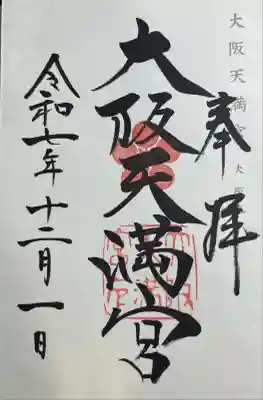 大阪天満宮
奉拝
大阪天満宮
令和七年十二月一日